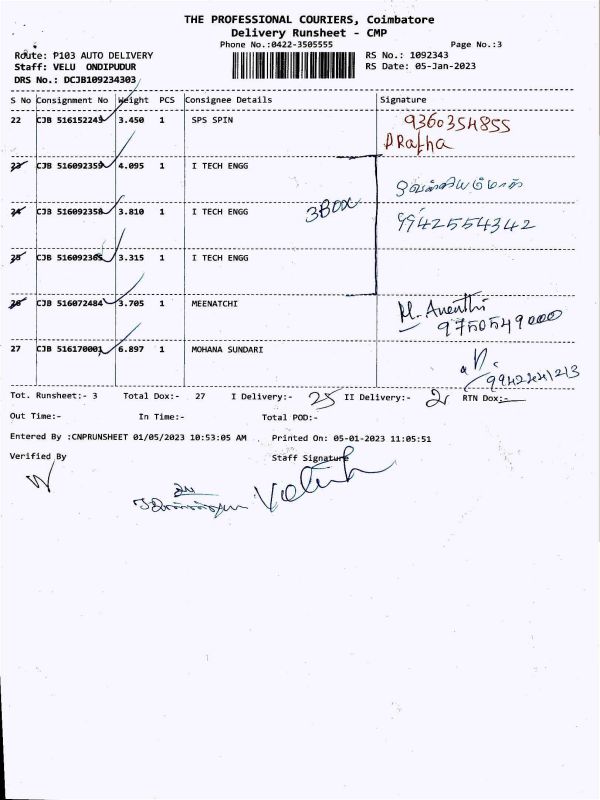 THE PROFESSIONAL COURIERS, Coimbatore
Delivery Runsheet - CMP
Phone No.:0422-3505555 Page No.:3
Route: P103 AUTO DELIVERY RS No.: 1092343
Staff: VELU ONDIPUDUR RS Date: 05-Jan-2023
DRS No.: DCJB109234303
S No Consignment No Weight PCS Consignee Details Signature
22 CJB 516152243 3.450 1 SPS SPIN 9360354855
PRatha
23 CJB 516092359 4.095 1 I TECH ENGG
24 CJB 516092358 3.810 1 I TECH ENGG 3BOX 9942554342
25 CJB 516092365 3.315 1 I TECH ENGG
26 CJB 516072484 3.705 1 MEENATCHI M. Ananthi
9750549000
27 CJB 516170001 6.897 1 MOHANA SUNDARI
Tot. Runsheet:- 3 Total Dox:- 27 I Delivery:- 25 II Delivery:- 2 RTN Dox:-
Out Time:- In Time:- Total POD:-
Entered By :CNPRUNSHEET 01/05/2023 10:53:05 AM Printed On: 05-01-2023 11:05:51
Verified By Staff Signature